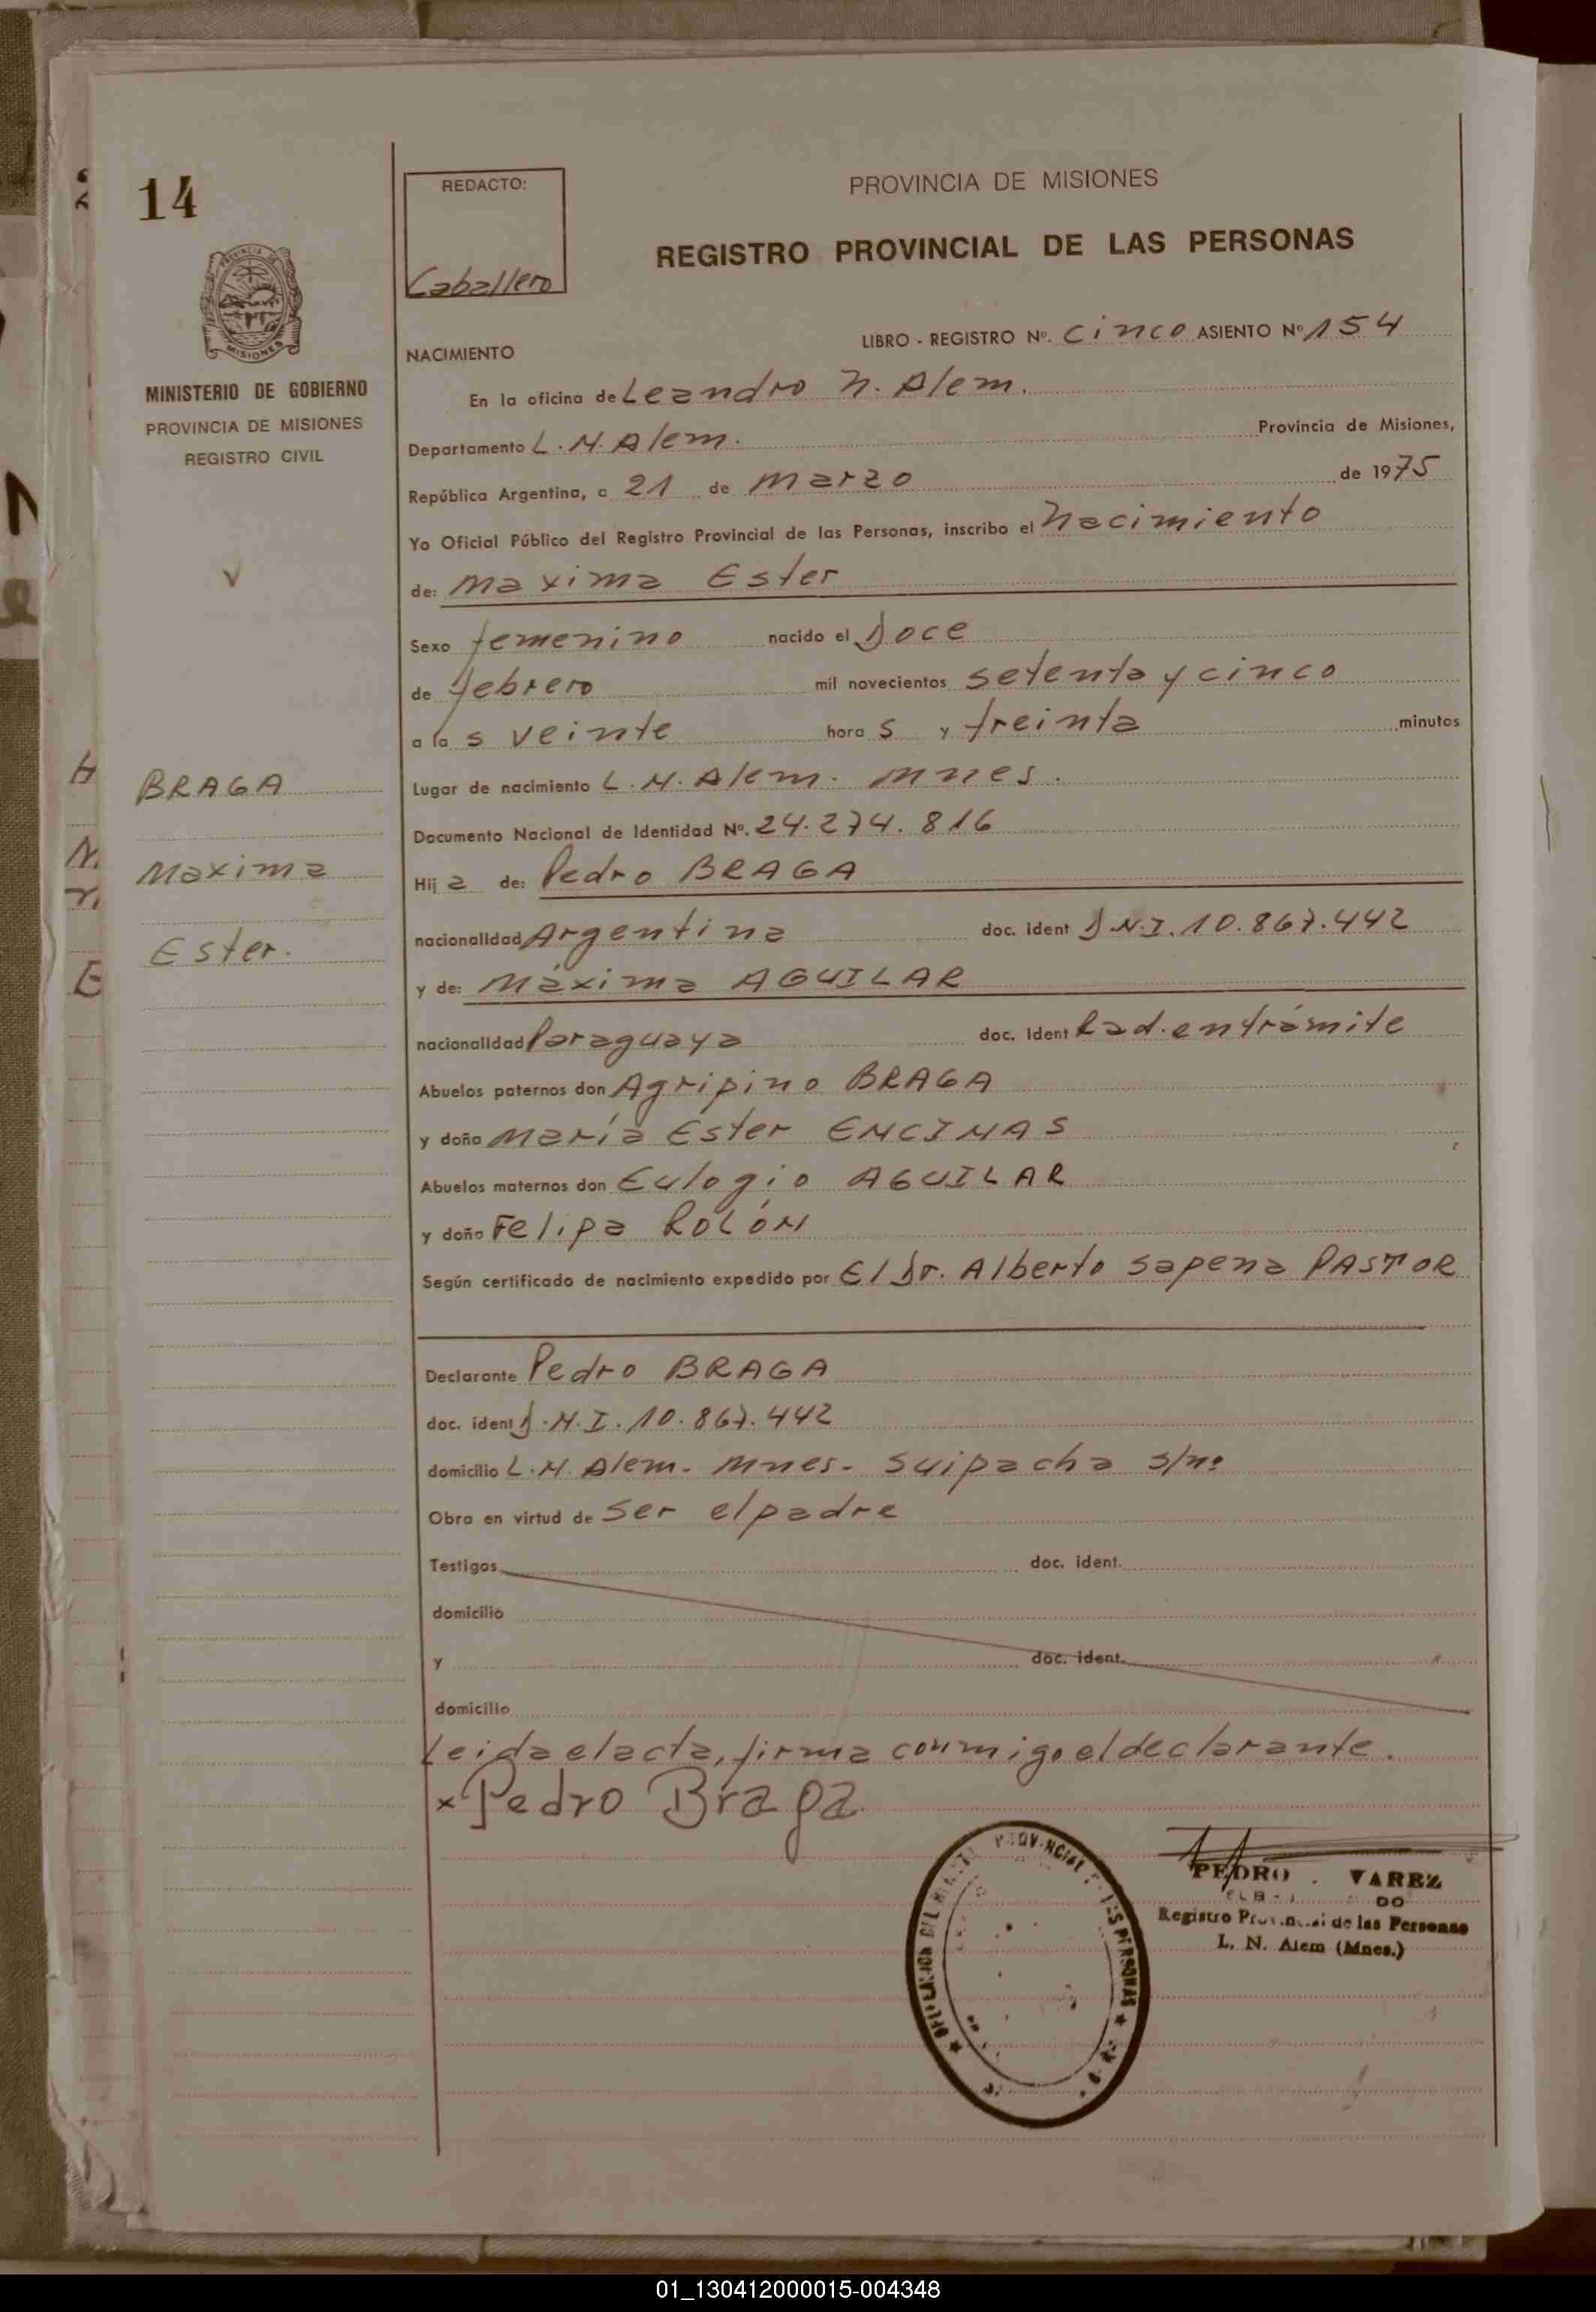 14
MINISTERIO DE GOBIERNO
PROVINCIA DE MISIONES
REGISTRO CIVIL
BRAGA
Maxima
Ester.
REDACTO:
Caballero
PROVINCIA DE MISIONES
REGISTRO PROVINCIAL DE LAS PERSONAS
LIBRO - REGISTRO Nº. Cinco ASIENTO Nº 154
NACIMIENTO
En la oficina de Leandro N. Alem.
Departamento L.N. Alem. Provincia de Misiones,
República Argentina, a 21 de Marzo de 1975
Yo Oficial Público del Registro Provincial de las Personas, inscribo el Nacimiento
de: Maxima Ester
Sexo femenino nacido el Doce
de febrero mil novecientos setenta y cinco
a las veinte horas y treinta minutos
Lugar de nacimiento L.N. Alem. Mnes.
Documento Nacional de Identidad Nº. 24.274.816
Hija de: Pedro BRAGA
nacionalidad Argentina doc. ident D.N.I. 10.867.442
y de: Máxima AGUILAR
nacionalidad Paraguaya doc. ident Rad. en trámite
Abuelos paternos don Agripino BRAGA
y doña María Ester ENCINAS
Abuelos maternos don Eulogio AGUILAR
y doña Felipa ROLÓN
Según certificado de nacimiento expedido por El Dr. Alberto Sapena PASTOR
Declarante Pedro BRAGA
doc. ident D.N.I. 10.867.442
domicilio L.N. Alem - Mnes - Suipacha s/nº
Obra en virtud de ser el padre
Testigos doc. ident.
domicilio
y doc. ident.
domicilio
Leida el acta, firma conmigo el declarante.
x Pedro Braga
PEDRO VAREZ
Registro Provincial de las Personas
L. N. Alem (Mnes.)
01_130412000015-004348